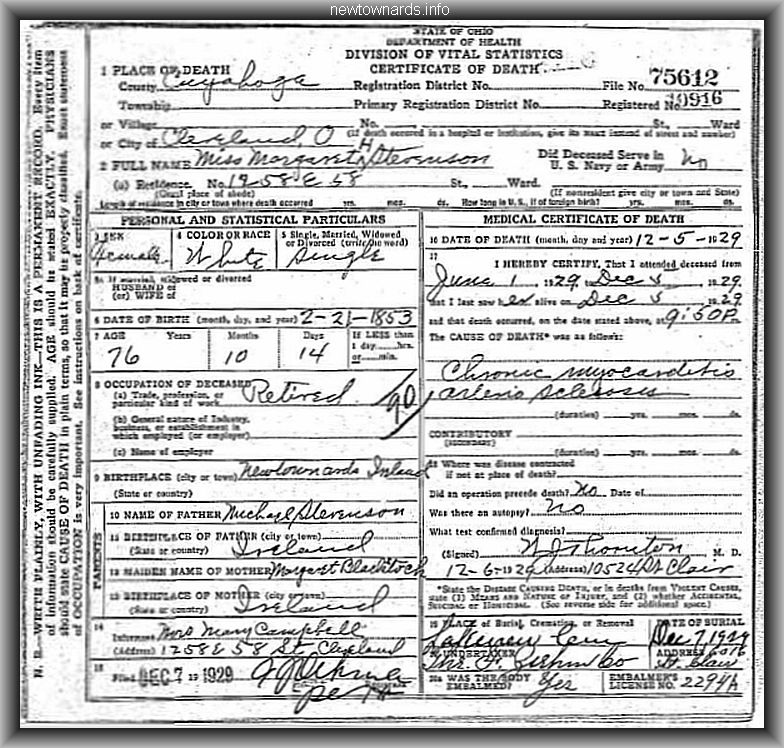 newtownards.info
STATE OF OHIO
DEPARTMENT OF HEALTH
DIVISION OF VITAL STATISTICS
CERTIFICATE OF DEATH
1 PLACE OF DEATH
County Cuyahoga Registration District No. File No. 75612
Township Primary Registration District No. Registered No. 9916
or Village No. St., Ward
or City of Cleveland, O (If death occurred in a hospital or institution, give its NAME instead of street and number)
2 FULL NAME Miss Margaret H Stevenson Did Deceased Serve in U. S. Navy or Army No
(a) Residence. No. 1258 E 58 St., Ward.
(Usual place of abode) (If nonresident give city or town and State)
Length of residence in city or town where death occurred yrs. mos. ds. How long in U. S., if of foreign birth? yrs. mos. ds.
PERSONAL AND STATISTICAL PARTICULARS
3 SEX Female
4 COLOR OR RACE White
5 Single, Married, Widowed or Divorced (write the word) Single
5a If married, widowed or divorced
HUSBAND of
(or) WIFE of
6 DATE OF BIRTH (month, day, and year) 2-21-1853
7 AGE Years Months Days If LESS than
1 day, hrs.
or min.
76 10 14
8 OCCUPATION OF DECEASED
(a) Trade, profession, or particular kind of work Retired
90
(b) General nature of Industry, business, or establishment in which employed (or employer)
(c) Name of employer
9 BIRTHPLACE (city or town) Newtownards Ireland
(State or country)
PARENTS
10 NAME OF FATHER Michael Stevenson
11 BIRTHPLACE OF FATHER (city or town)
(State or country) Ireland
12 MAIDEN NAME OF MOTHER Margaret Blackstock
13 BIRTHPLACE OF MOTHER (city or town)
(State or country) Ireland
14 Informant Mrs Mary Campbell
(Address) 1258 E 58 St, Cleveland
15 Filed DEC 7 1929
MEDICAL CERTIFICATE OF DEATH
16 DATE OF DEATH (month, day and year) 12-5-1929
17 I HEREBY CERTIFY, That I attended deceased from
June 1, 1929 to Dec 5, 1929
that I last saw her alive on Dec 5, 1929
and that death occurred, on the date stated above, at 9:50P.
The CAUSE OF DEATH* was as follows:
Chronic Myocarditis
arterio Sclerosis
(duration) yrs. mos. ds.
CONTRIBUTORY
(SECONDARY)
(duration) yrs. mos. ds.
18 Where was disease contracted
if not at place of death?
Did an operation precede death? No Date of
Was there an autopsy? No
What test confirmed diagnosis?
(Signed) W J Thornton, M. D.
12-6-1929 (Address) 10524 St Clair
*State the DISEASE CAUSING DEATH, or in deaths from VIOLENT CAUSES, state (1) MEANS AND NATURE OF INJURY, and (2) whether ACCIDENTAL, SUICIDAL or HOMICIDAL. (See reverse side for additional space.)
19 PLACE of Burial, Cremation, or Removal Lakeview Cem
DATE OF BURIAL Dec 7, 1929
20 UNDERTAKER
ADDRESS 6016 St. Clair
20a WAS THE BODY EMBALMED? Yes
EMBALMER'S LICENSE NO. 2294A
N. B.—WRITE PLAINLY, WITH UNFADING INK—THIS IS A PERMANENT RECORD. Every item
of information should be carefully supplied. AGE should be stated EXACTLY. PHYSICIANS
should state CAUSE OF DEATH in plain terms, so that it may be properly classified. Exact statement
of OCCUPATION is very important. See instructions on back of certificate.